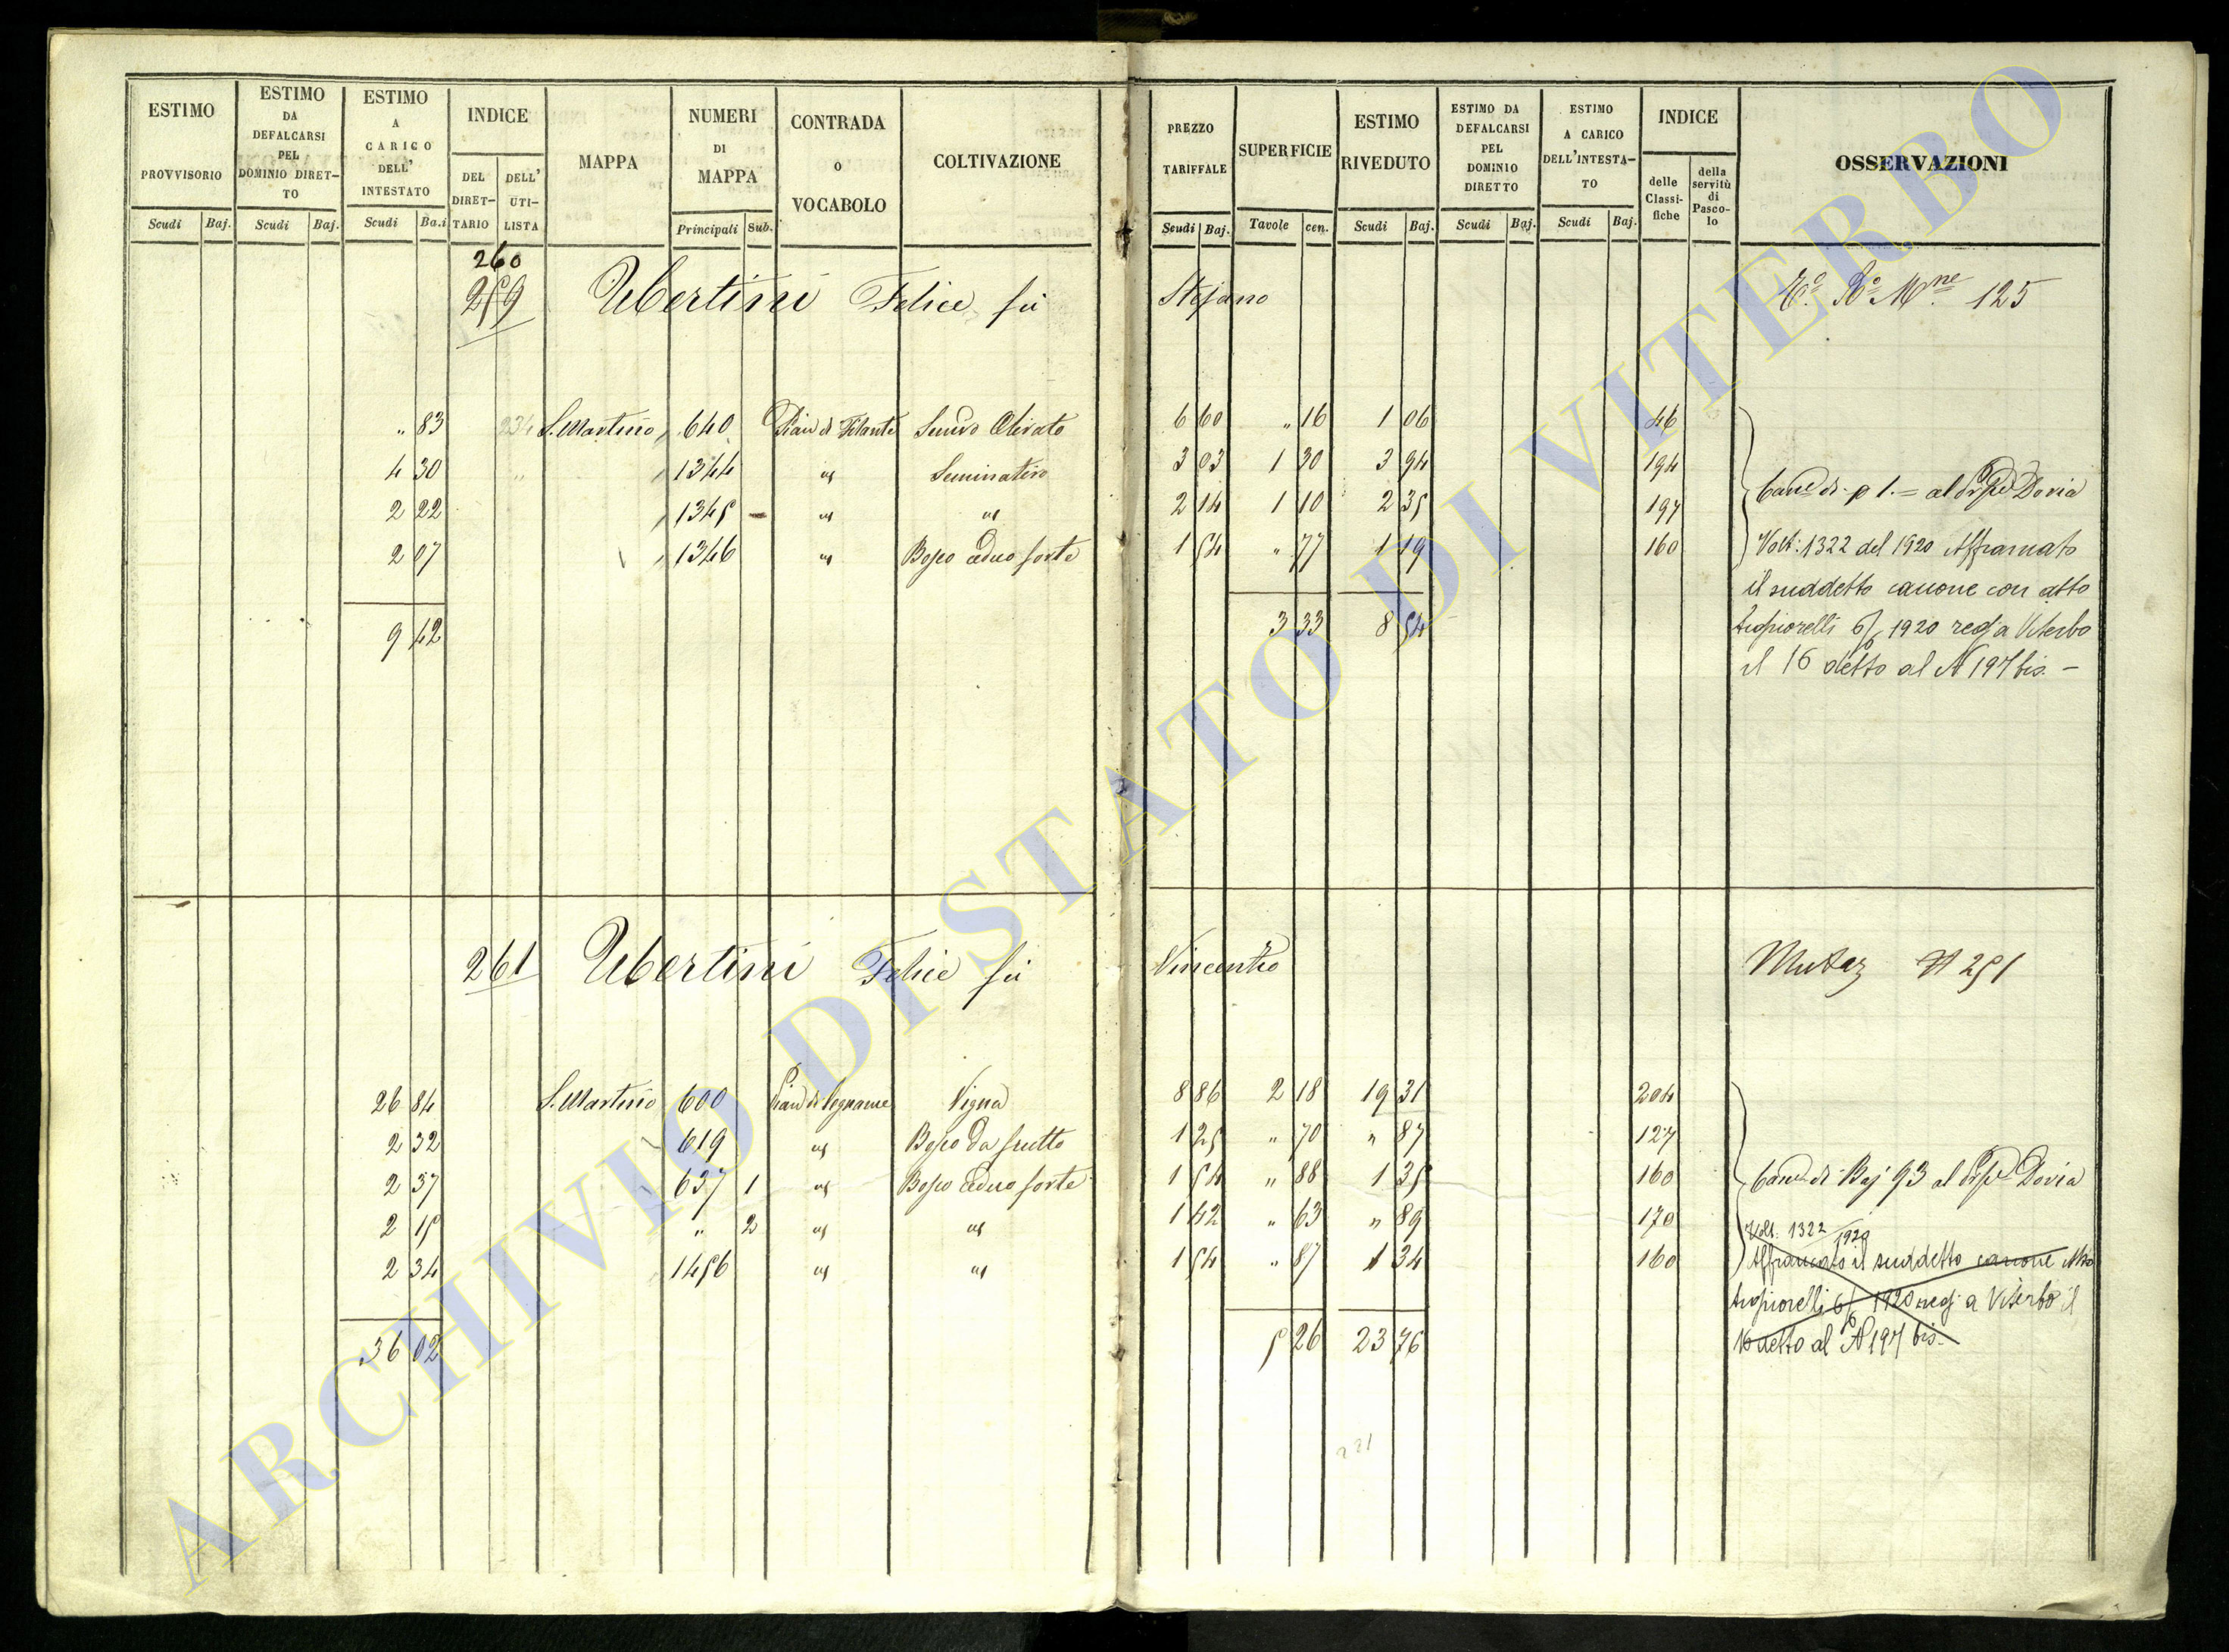 ESTIMO PROVVISORIO Scudi Baj.
ESTIMO DA DEFALCARSI PEL DOMINIO DIRET-TO Scudi Baj.
ESTIMO A CARICO DELL' INTESTATO Scudi Ba.i
INDICE DEL DIRET-TARIO DELL' UTI-LISTA
MAPPA
NUMERI DI MAPPA Principali Sub.
CONTRADA O VOCABOLO
COLTIVAZIONE
PREZZO TARIFFALE Scudi Baj.
SUPERFICIE Tavole cen.
ESTIMO RIVEDUTO Scudi Baj.
ESTIMO DA DEFALCARSI PEL DOMINIO DIRETTO Scudi Baj.
ESTIMO A CARICO DELL'INTESTA-TO Scudi Baj.
INDICE delle Classi-fiche della servitù di Pasco-lo
OSSERVAZIONI
260
259 Ubertini Felice fù Stefano 125
" 83 234 S. Martino 640 Pian di Filante Semvo Olivato 6 60 " 16 1 06 46
4 30 " 1344 " Seminativo 3 03 1 30 3 94 194
2 22 1345 " " 2 14 1 10 2 35 197
2 07 1346 " Bosco ceduo forte 1 54 " 77 1 19 160
9 42 3 33 8 54
Cane di 1.= al Doria
Volt: 1322 del 1920 Affrancato
il suddetto canone con atto
1920 reg a Viterbo
il 16 detto al N 197 bis. -
261 Ubertini Felice fù Vincenzo Mutaz N 251
26 84 S. Martino 600 Pian di Legname Vigna 8 86 2 18 19 31 204
2 32 619 " Bosco da frutto 1 25 " 70 " 87 127
2 37 637 1 " Bosco ceduo forte 1 54 " 88 1 35 160
2 15 " 2 " " 1 42 " 63 " 89 170
2 34 1456 " " 1 54 " 87 1 34 160
36 02 5 26 23 76
Cane di Baj 93 al Doria
Volt. 1322/1920
Affrancato il suddetto canone Atto
1920 reg a Viterbo il
16 detto al N 197 bis.
221
ARCHIVIO DI STATO DI VITERBO